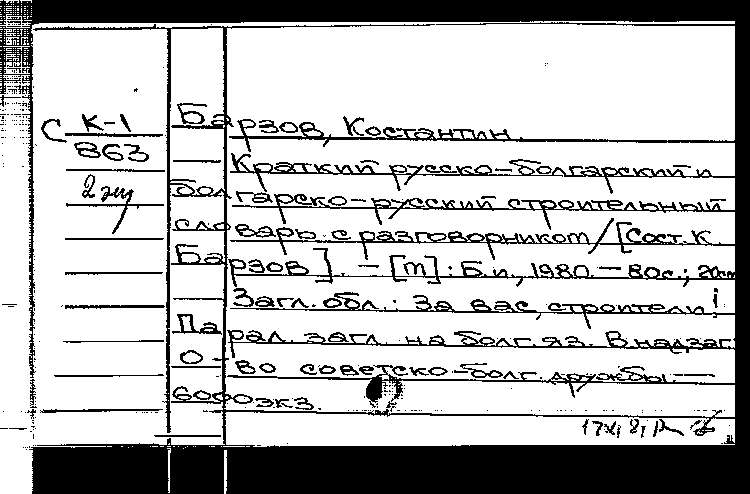 С К-1
863
2 экз.
Барзов, Костантин.
Краткий русско-болгарский и
болгарско-русский строительный
словарь с разговорником / [Сост. К.
Барзов]. — [m] : Б.и., 1980. — 80с.; 20см
Загл. обл.: За вас, строители!
Парал. загл. на болг. яз. В надзаг.
О-во советско-болг. дружбы. —
6000экз.